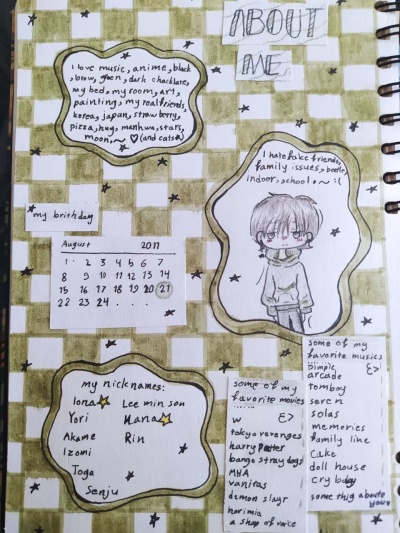 ABOUT
ME
I love music, anime, black
brow, green, dark chacklate,
my bed, my room, art,
painting, my real friends,
korea, japan, strawberry,
pizza, hug, manhwa, stars,
moon, ~ ♡ (and cats)
I hate fake friends,
family issues, beetle,
indoor, school, ~ :(
my brithday
August 2011
1 2 3 4 5 6 7
8 9 10 11 12 13 14
15 16 17 18 19 20 21
22 23 24 . . . .
my nicknames:
Iona Lee min sou
Yori Hana
Akame Rin
Izomi
Toga
Senju
some of my
favorite movies
W
tokyo revenges
harry Potter
bango stray dogs
MHA
vanitas
demon slayr
horimia
a shap of voice
some of my
favorite musics
Simple
arcade
tomboy
seren
solas
memories
family line
cake
doll house
cry baby
some thig aboute
you